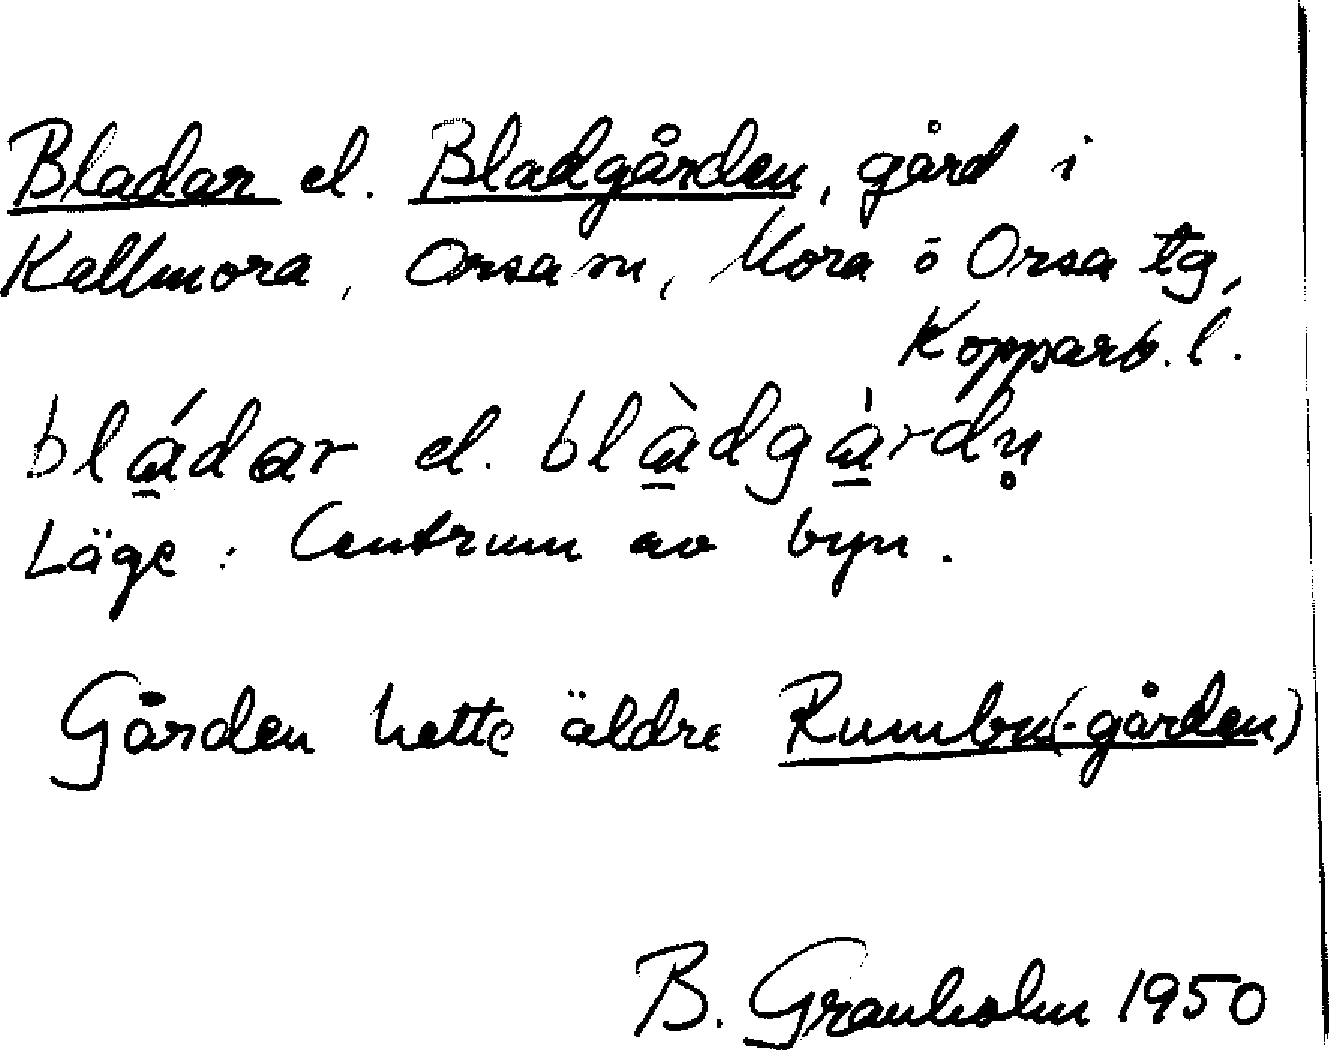 Bladar el. Bladgården, gård i
Kallmora, Orsa sn, Mora o Orsa tg,
Kopparb. l.
blá̱dar el. blà̱dgà̱rdn̥
Läge: Centrum av byn.
Gården hette äldre Rumbu(-gården)
B. Granholm 1950